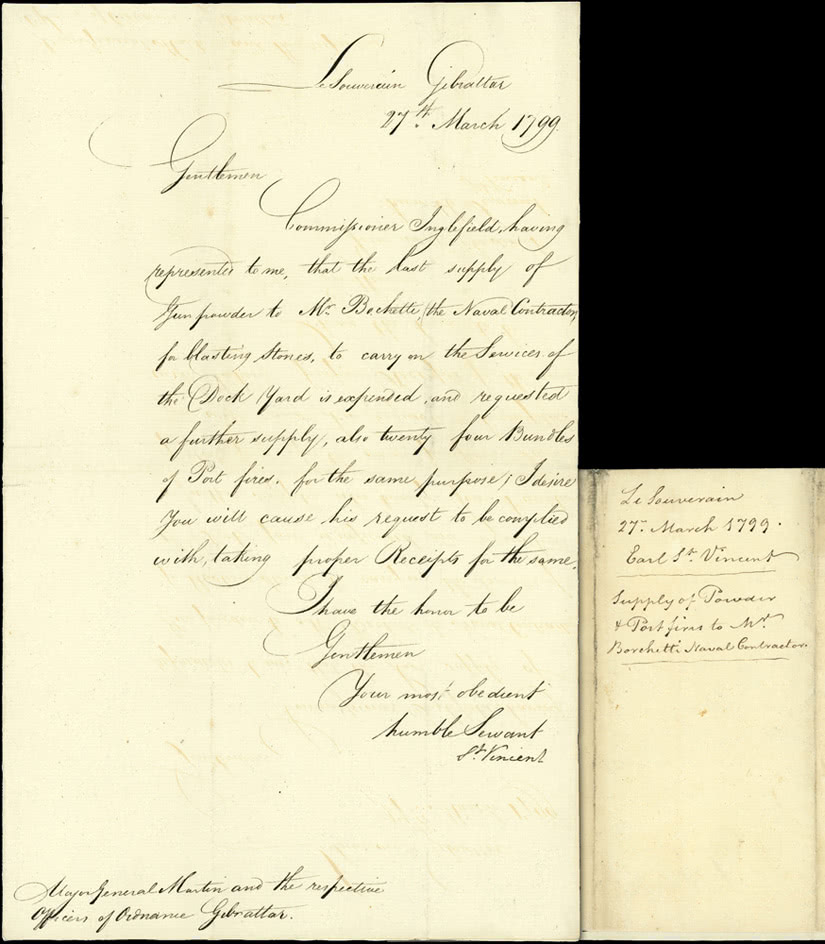 Le Souverain Gibraltar
27th. March 1799.
Gentlemen
Commissioner Inglefield, having
represented to me, that the last supply of
Gun powder to Mr. Bochetti, (the Naval Contractor,
for blasting Stones, to carry on the Services of
the Dock Yard is expended, and requested
a further supply, also twenty four Bundles
of Port fires, for the same purpose; I desire
You will cause his request to be complied
with, taking proper Receipts for the same.
I have the honor to be
Gentlemen
Your most. obedient
humble Servant
St. Vincent
Major General Martin and the respective
Officers of Ordnance Gibraltar.
Le Souverain
27th. March 1799.
Earl St. Vincent
Supply of Powder
& Port fires to Mr.
Borchetti Naval Contractor.